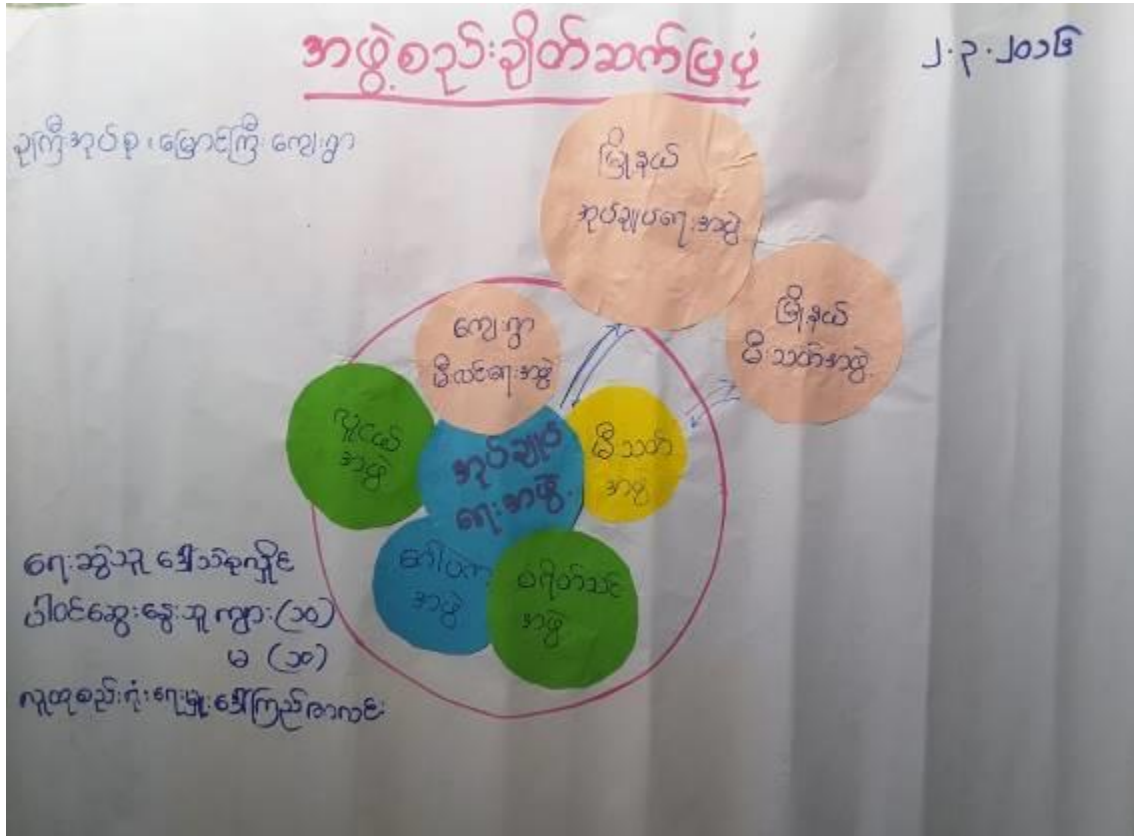 အဖွဲ့စည်းချိတ်ဆက်ပြပုံ
၂.၃.၂၀၁၆
ခုကြီးအုပ်စု၊ မြောင်ကြီးကျေးရွာ
မြို့နယ်
အုပ်ချုပ်ရေးအဖွဲ့
မြို့နယ်
မီးသတ်အဖွဲ့
ကျေးရွာ
မီးလင်းရေးအဖွဲ့
လူငယ်
အဖွဲ့
အုပ်ချုပ်
ရေးအဖွဲ့
မီးသတ်
အဖွဲ့
ဂေါပက
အဖွဲ့
မရိတ်သင်
အဖွဲ့
ရေးဆွဲသူ ဒေါ်သစုလှိုင်
ပါဝင်ဆွေးနွေးသူ ကျား (၁၀)
မ (၁၀)
လူထုစည်းရုံးရေးမှူး ဒေါ်ကြည်ဇာလင်း